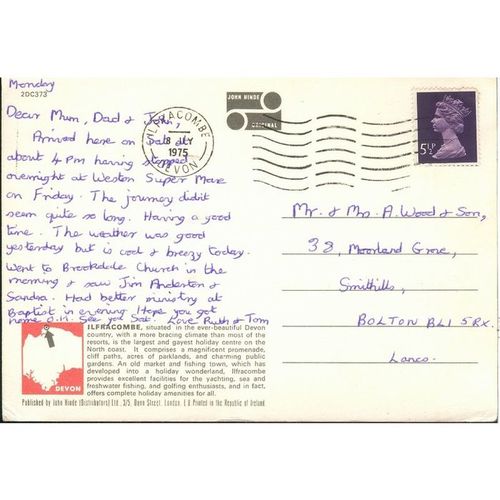 Monday
2DC373
Dear Mum, Dad & John,
Arrived here on Sat at
about 4 PM having stopped
overnight at Weston Super Mare
on Friday. The journey didn't
seem quite so long. Having a good
time. The weather was good
yesterday but is cool & breezy today.
Went to Brookdale Church in the
morning & saw Jim Anderton &
Sandra. Had better ministry at
Baptist in evening. Hope you got
home O.K. See you Sat. Love Ruth & Tom
JOHN HINDE
ORIGINAL
ILFRACOMBE
8 JLY
1975
DEVON
5½P
Mr. & Mrs. A. Wood & Son,
38, Moorland Grove,
Smithills,
BOLTON BL1 5RX.
Lancs.
DEVON
ILFRACOMBE, situated in the ever-beautiful Devon
country, with a more bracing climate than most of the
resorts, is the largest and gayest holiday centre on the
North coast. It comprises a magnificent promenade,
cliff paths, acres of parklands, and charming public
gardens. An old market and fishing town, which has
developed into a holiday wonderland, Ilfracombe
provides excellent facilities for the yachting, sea and
freshwater fishing, and golfing enthusiasts, and in fact,
offers complete holiday amenities for all.
Published by John Hinde (Distributors) Ltd., 3/5, Dunn Street, London, E.8 Printed in the Republic of Ireland